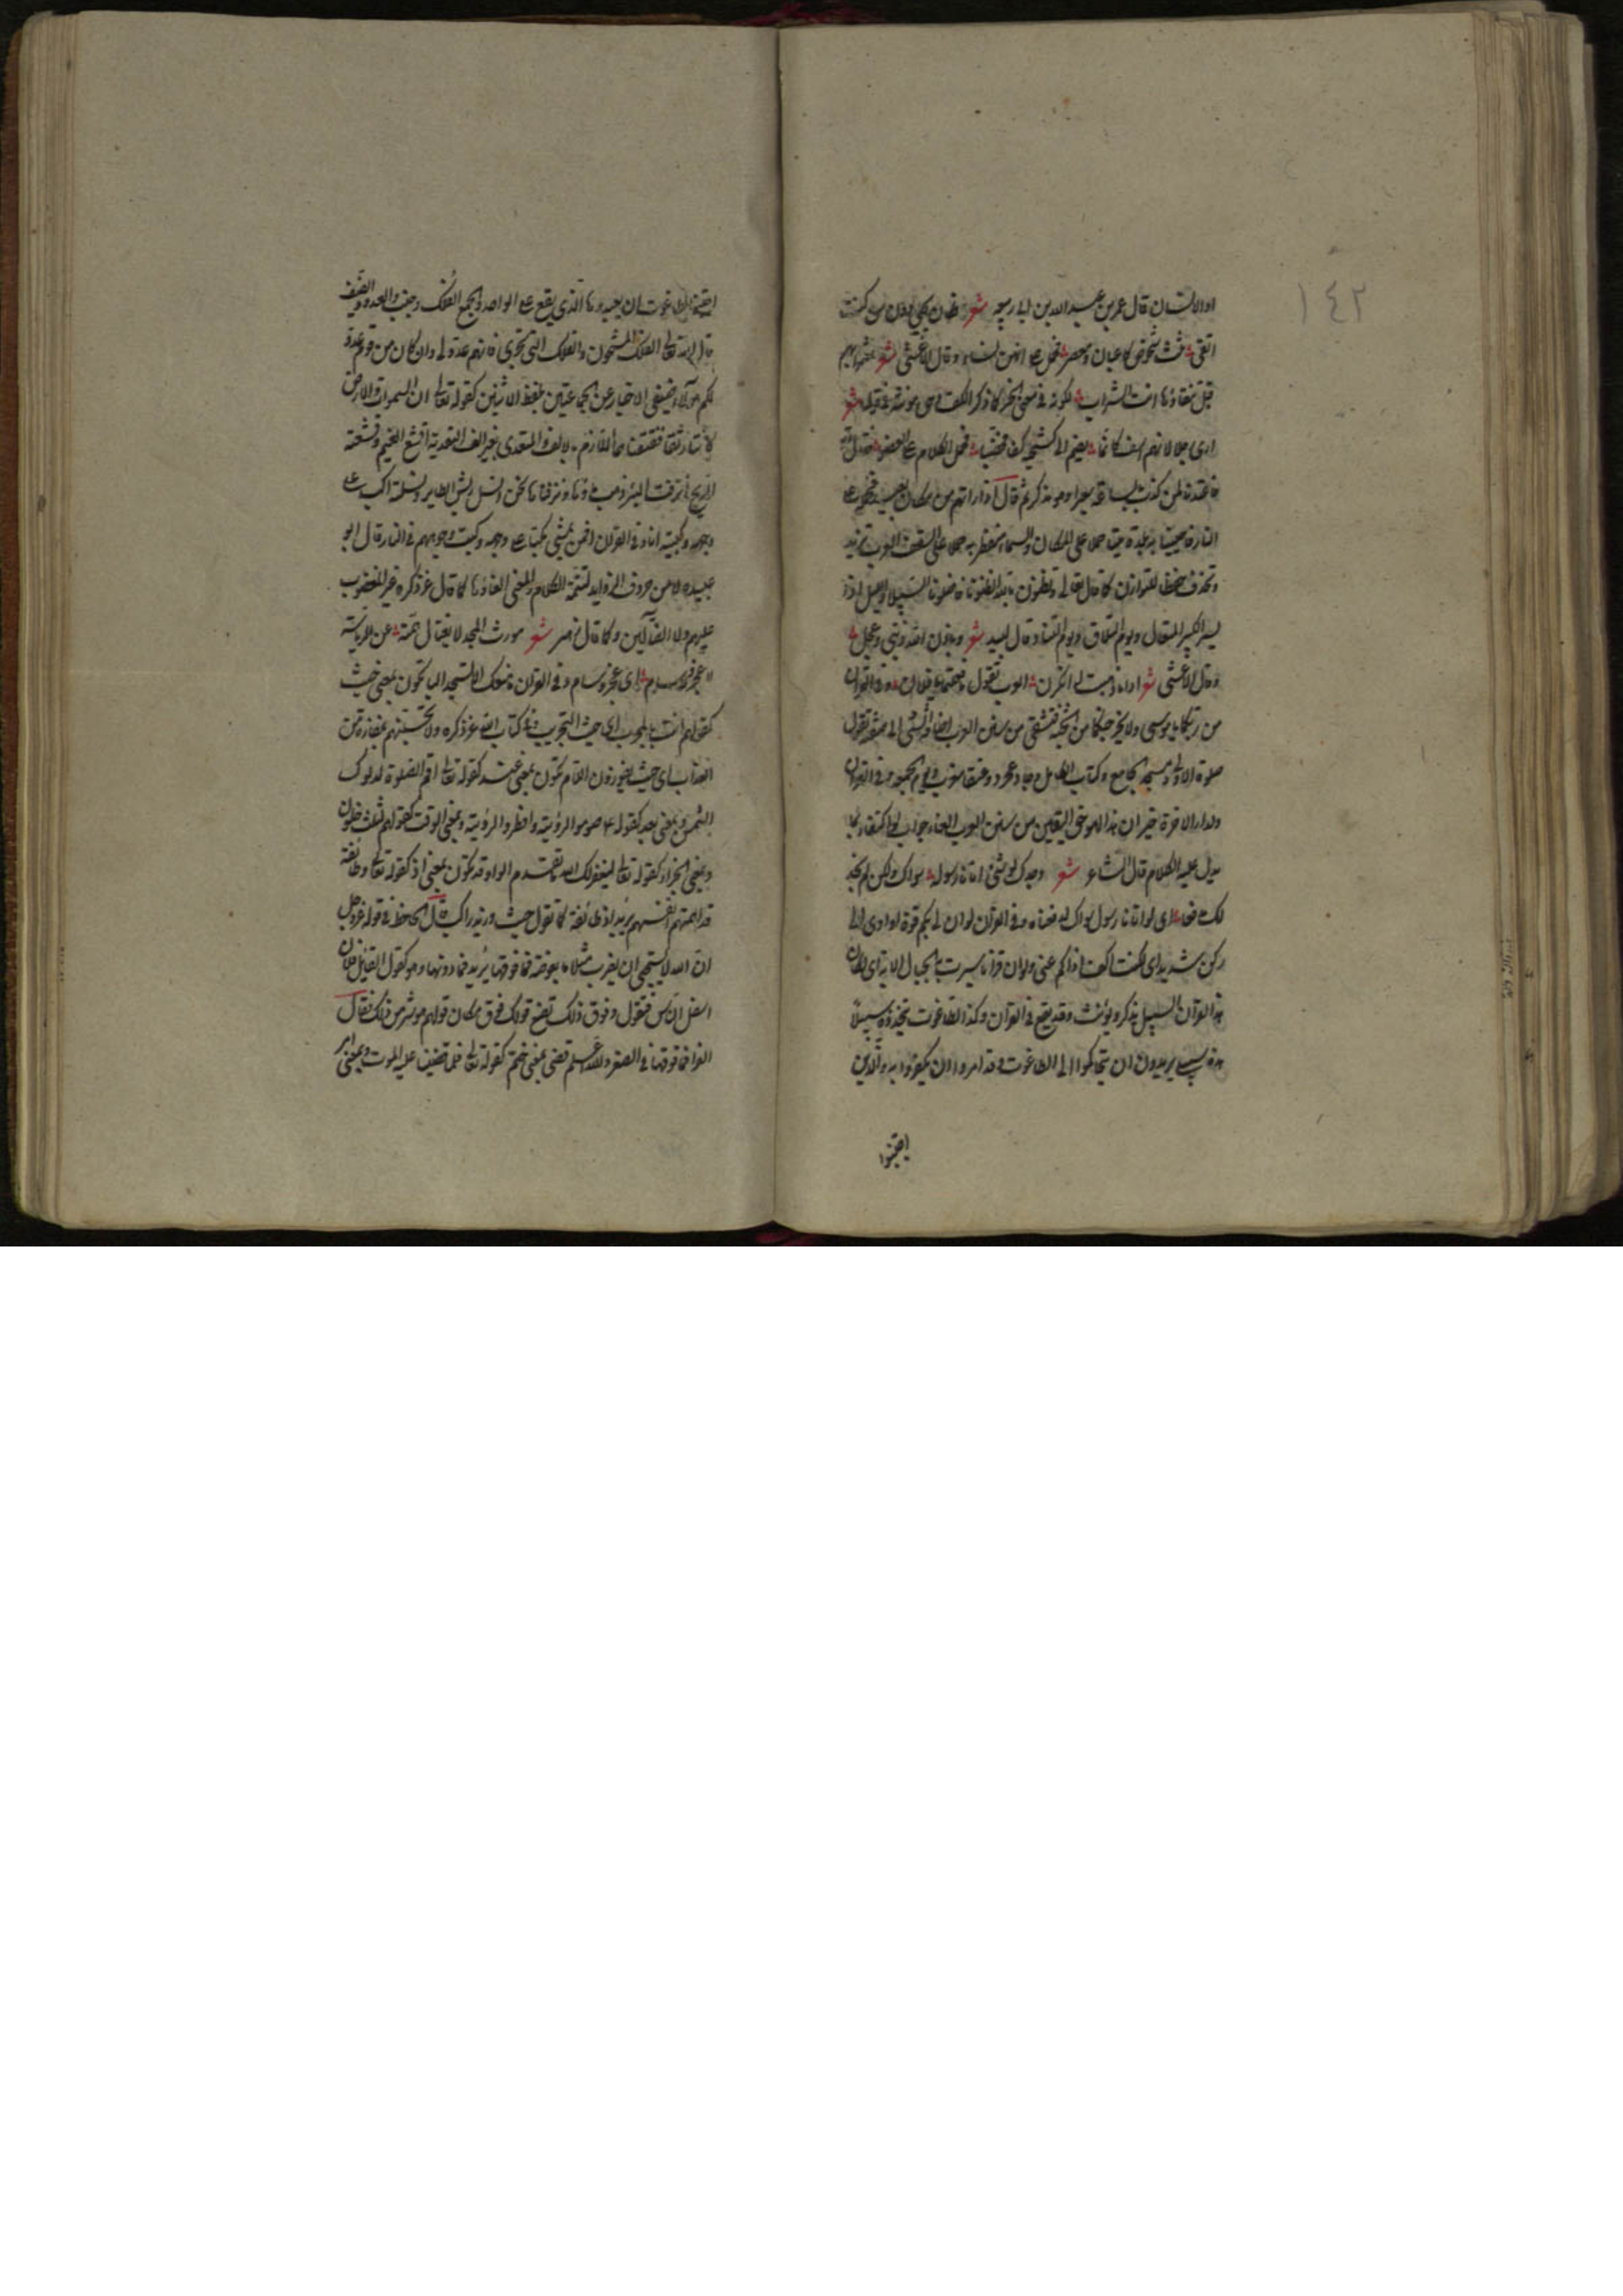 ١٤٢
او الانسان قال عمر بن عبد الله بن ابى ربيعة شعر فكان مجنى دون من كنت
اتقى ثلث شخوص كاعبان ومعصر فحمل على انهن نساء وقال الاعشى شعر
قبل انت الشراب لكونه فى معنى الخمر كما ذكر الكف وهى مؤنثة فى قوله شعر
ارى رجلا منهم اسفا كانما يضم الى كشحيه كفا مخضبا فحمل الكلام على العضو
لمن كذب بالساعة سعيرا وهو مذكر ثم قال اذا راتهم من مكان بعيد فحمله على
النار فاحيينا به بلدة ميتا حمله على المكان والسماء منفطر به حمله على السقف العرب تزيد
وتحذف حفظا للتوازن كما قال تعالى وتظنون بالله الظنونا فاضلونا السبيلا والليل اذا
يسر الكبير المتعال ويوم التلاق ويوم التناد وقال لبيد شعر وباذن الله ريثى وعجل
وقال الاعشى شعر العرب تقول يا فلان وفى القرآن
من ربكما يا موسى ولا يخرجنكما من الجنة فتشقى من سنن العرب اضافة الشىء الى صفته تقول
صلوة الاولى ومسجد الجامع وكتاب الكامل وحماد عجرد وعنقاء مغرب ويوم الجمعة وفى القرآن
ولدار الاخرة خير ان هذا لهو حق اليقين من سنن العرب الغاء جواب لو اكتفاء بما
يدل عليه الكلام قال الشاعر شعر وجدك لو شئ اتانا رسوله سواك ولكن لم نجد
لك مدفعا اى لو اتانا رسول سواك لدفعناه وفى القرآن لو ان لى بكم قوة او اوى الى
ركن شديد اى لكنت اكف اذاكم عنى ولو ان قرآنا سيرت به الجبال الاية اى لكان
هذا القرآن السبيل يذكر ويؤنث وقد يقع فى القرآن وكذا الطاغوت يتخذوه سبيلا
هذه سبيلى يريدون ان يتحاكموا الى الطاغوت وقد امروا ان يكفروا به والذين
اجتنبوا
اجتنبوا الطاغوت ان يعبدوها الذى يقع على الواحد والجمع الفلك وجنب والعدو والضيف
قال الله تعالى الفلك المشحون والفلك التى تجرى فانهم عدو لى وان كان من قوم عدو
لكم هؤلاء ضيفى الاخبار عن الجماعتين بلفظ الاثنين كقوله تعالى ان السموات والارض
كانتا رتقا ففتقناهما اللازم بالالف والمتعدى بغير الف التعدية اقشع الغيم وقشعته
الريح انزفت البئر ذهب ماؤها ونزفناها نحن انسل ريش الطاير ونسلته اكب على
وجهه وكببته انا وفى القرآن افمن يمشى مكبا على وجهه وكبت وجوههم فى النار قال ابو
عبيده لا من حروف الزوايد لتتمة الكلام والمعنى الغاؤها كما قال عز ذكره غير المغضوب
عليهم ولا الضالين وكما قال زهير شعر مورث المجد لا يغتال همته عن الرياسة
لا عجز ولا سام اى عجز وسام وفى القرآن ما منعك الا تسجد الباء تكون بمعنى حيث
كقولهم انت بالمجرب اى حيث التجريب وفى كتاب الله عز ذكره ولا تحسبنهم بمفازة من
العذاب اى حيث يفوزون اللام تكون بمعنى عند كقوله تعالى اقم الصلوة لدلوك
الشمس وبمعنى بعد كقوله ع صوموا لرؤيته وافطروا لرؤيته وبمعنى الوقت كقولهم لثلث خلون
وبمعنى الجزاء كقوله تعالى ليغفر لك الله ما تقدم الواو قد تكون بمعنى اذ كقوله تعالى وطائفة
قد اهمتهم انفسهم يريد اذ طائفة كما تقول جئت وزيد راكب قال الجاحظ فى قوله عز وجل
ان الله لا يستحيى ان يضرب مثلا ما بعوضة فما فوقها يريد فما دونها وهو كقول القايل فلان
اسفل الناس فتقول وفوق ذلك تضع قولك فوق مكان قولهم هو شر من ذلك فقال
الفرا فما فوقها فى الصغر والله اعلم قضى بمعنى ختم كقوله تعالى فلما قضينا عليه الموت وبمعنى امر